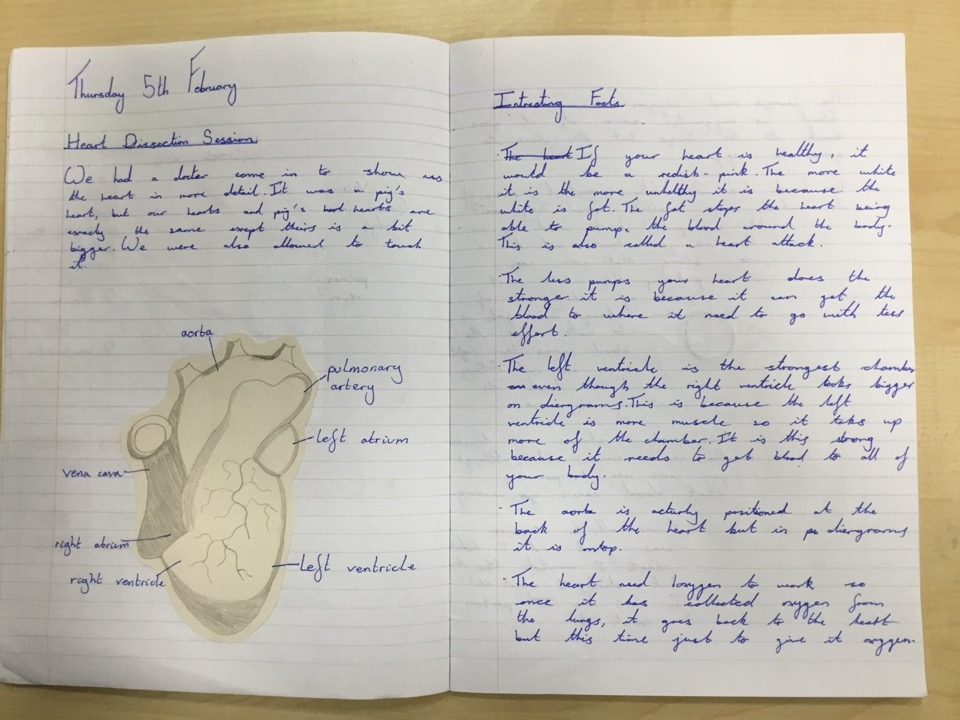 Thursday 5th February
Heart Dissection Session
We had a docter come in to show us
the heart in more detail. It was a pig's
heart, but our hearts and pig's hearts are
exacly the same except theirs is a bit
bigger. We were also allowed to touch
it.
aorta
pulmonary
artery
left atrium
vena cava
right atrium
right ventricle
left ventricle
Intresting Facts
The heart If your heart is healthy, it
would be a redish-pink. The more white
it is the more unheltly it is because the
white is fat. The fat stops the heart being
able to pump the blood around the body.
This is also called a heart attack.
The less pumps your heart does the
stronger it is because it can get the
blood to where it need to go with less
effort.
The left ventricle is the strongest chamber
even though the right ventricle looks bigger
on diergrams. This is because the left
ventricle is more muscle so it takes up
more of the chamber. It is this strong
because it needs to get blood to all of
your body.
The aorta is acturly positioned at the
back of the heart but in diergrams
it is ontop.
The heart need oxygen to work so
once it has collected oxygen from
the lungs, it goes back to the heart
but this time just to give it oxygen